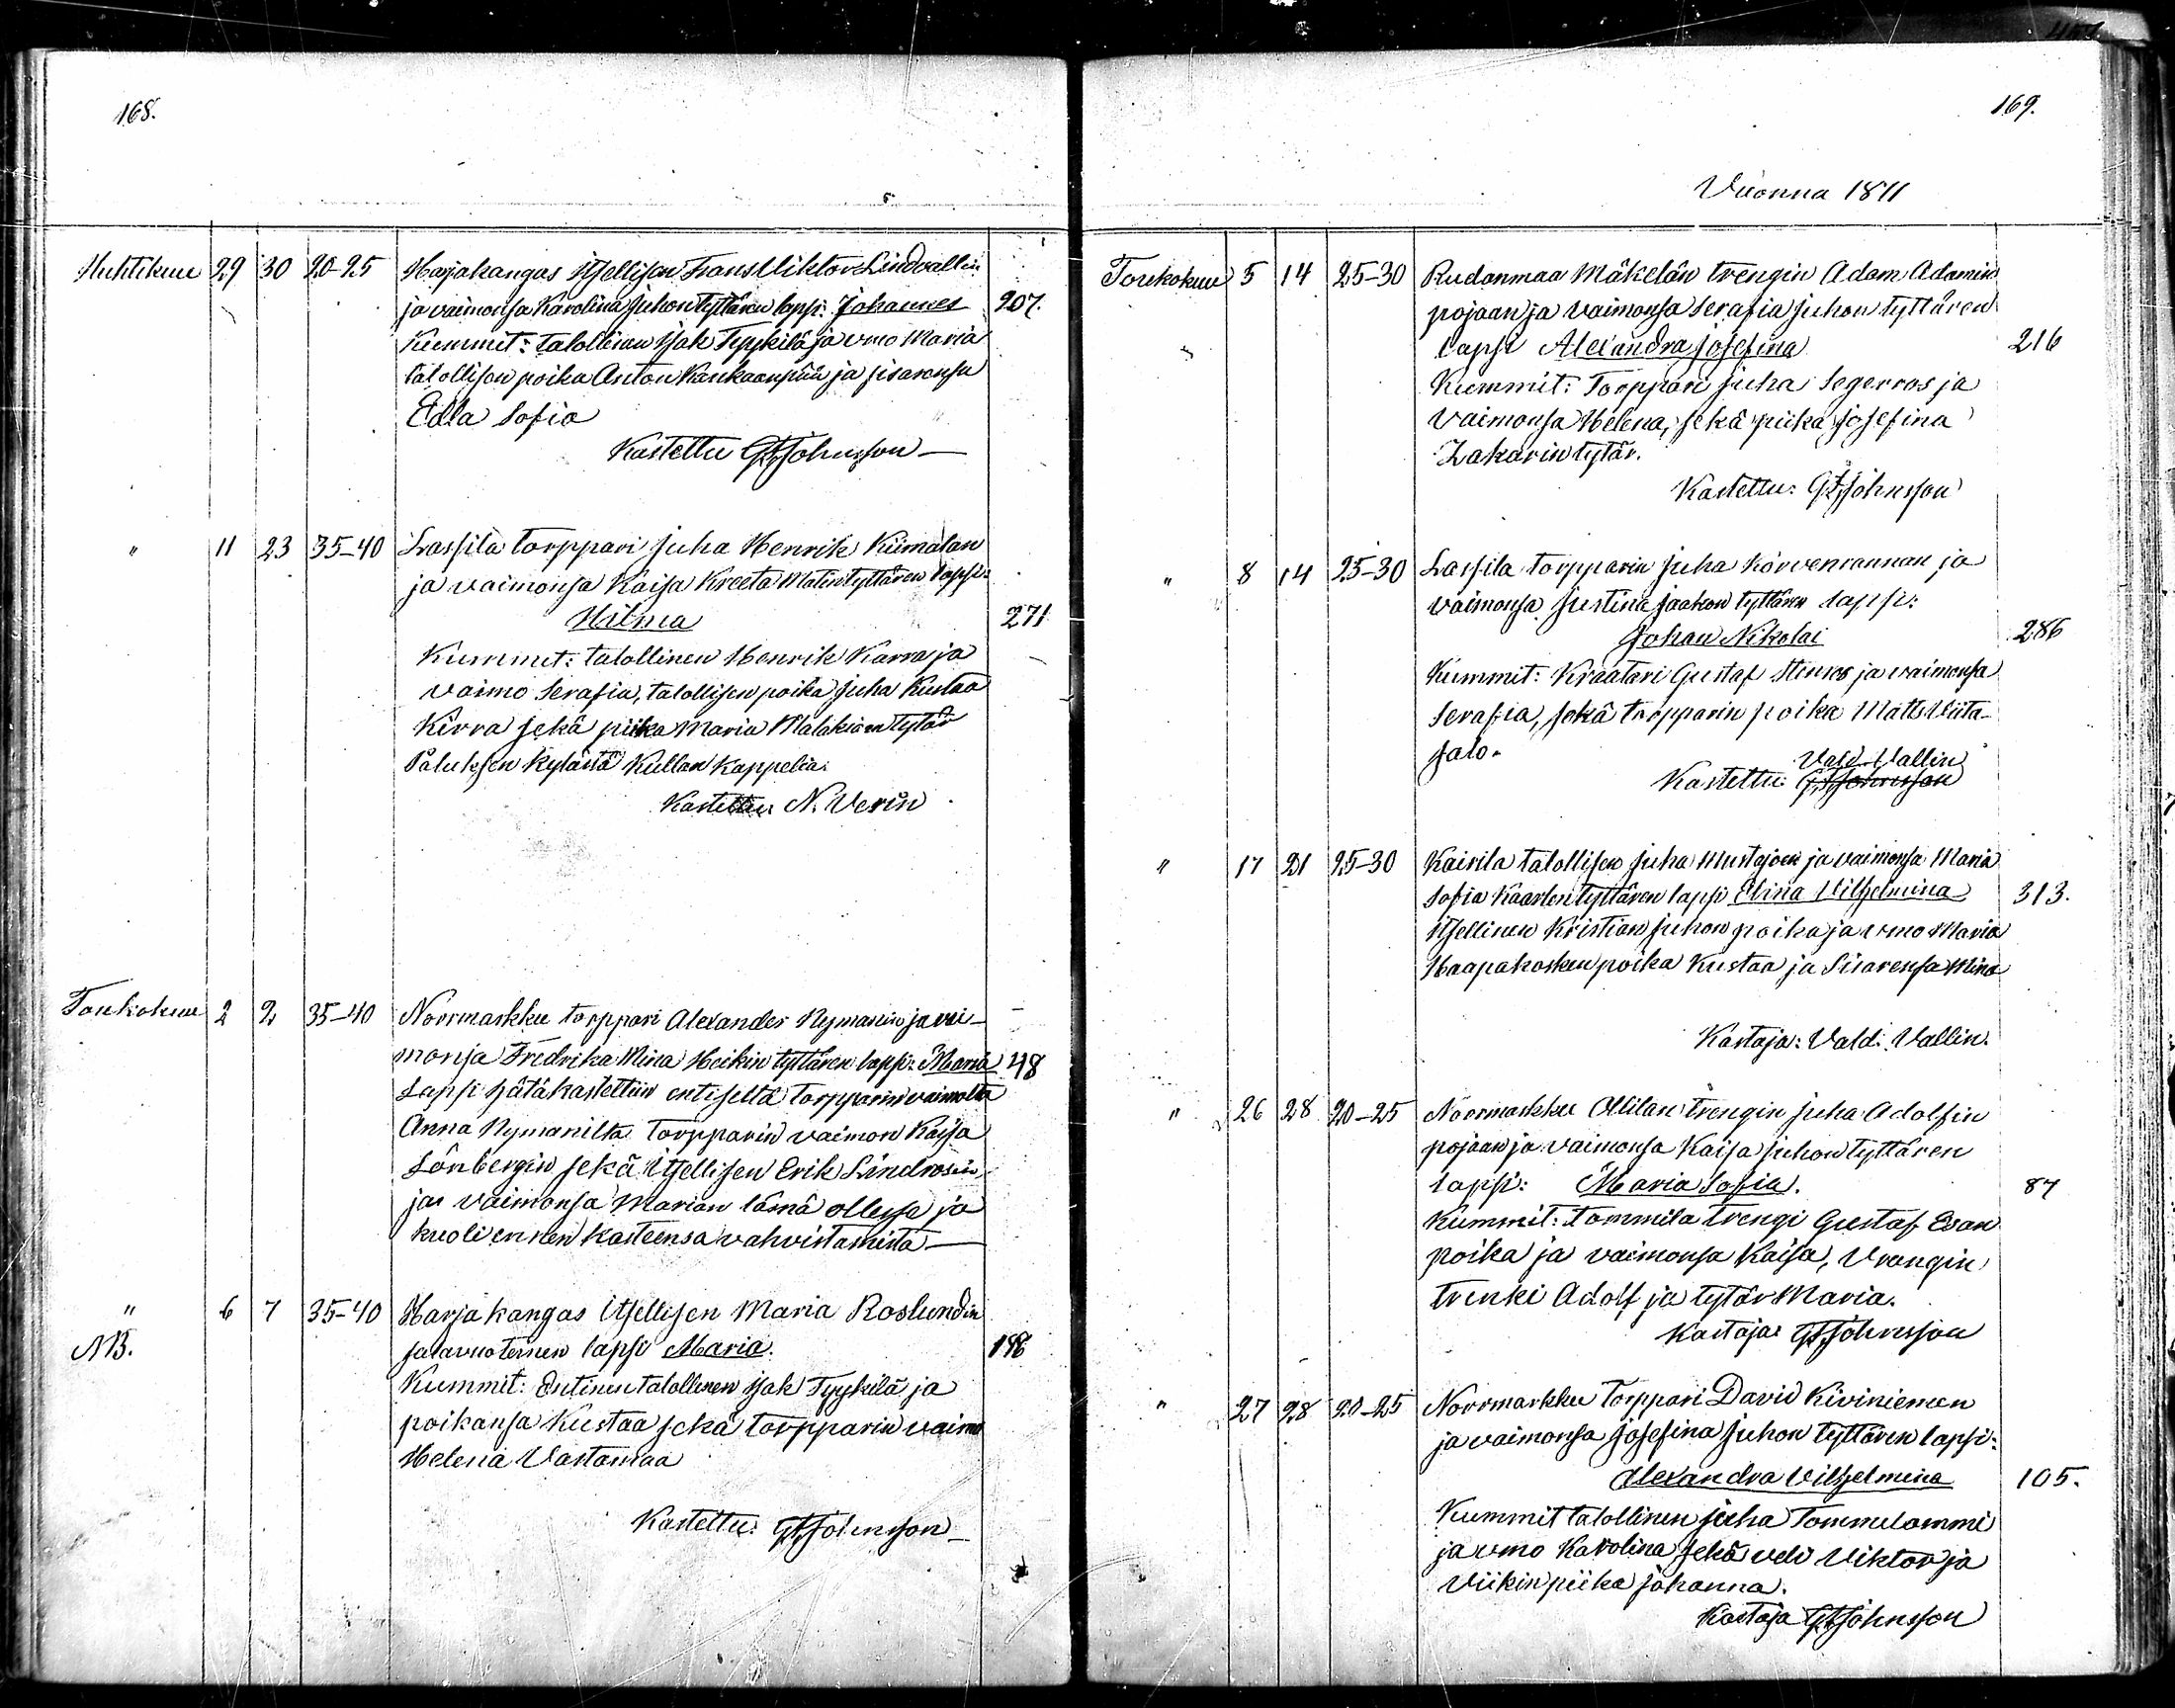 168.
Huhtikuu 29 30 20-25 Harjakangas Itsellisen Frans Viktor Lindvallin
ja vaimonsa Karolina Juhontyttären lapsi: Johannes 207.
Kummit: talollinen Isak Tyykilä ja vmo Maria
talollisen poika Anton Kankaanpää ja sisarensa
Edla Sofia
Kastettu G F Johnsson
" 11 23 35-40 Lassila torppari Juha Henrik Kiimalan
ja vaimonsa Kaisa Kreeta Matintyttären lapsi:
Hilma 271
Kummit: talollinen Henrik Karra ja
vaimo Serafia, talollisen poika Juha Kustaa
Kirra sekä piika Maria Malakiaen tytär
Paluksen kylästä Kullan Kappelia.
Kastettu: N. Verin
Toukokuu 2 2 35-40 Norrmarkku torppari Alexander Nymanin ja vai-
monsa Fredrika Mina Heikin tyttären lapsi: Maria 48
Lapsi hätäkastettiin entiseltä torpparin vaimolta
Anna Nymanilta torpparin vaimon Kaisa
Lönbergin sekä itsellisen Erik Lindrosin
ja vaimonsa Marian läsnä ollessa ja
kuoli ennen kasteensa vahvistamista
" 6 7 35-40 Harjakangas itsellisen Maria Roslundin
NB. salavuoteinen lapsi Maria. 196
Kummit: Entinen talollinen Isak Tyykilä ja
poikansa Kustaa sekä torpparin vaimo
Helena Vastamaa
Kastettu: G F Johnsson
169.
Vuonna 1871
Toukokuu 5 14 25-30 Rudanmaa Mäkelän trengin Adam Adamin
pojaan ja vaimonsa Serafia Juhon tyttären
lapsi Alexandra Josefina 216
Kummit: Torppari Juha Segerros ja
vaimonsa Helena, sekä piika Josefina
Zakarin tytär.
Kastettu: G F Johnsson
" 8 14 25-30 Lassila torpparin Juha Korvenrannan ja
vaimonsa Justina Jaakon tyttären lapsi:
Johan Nikolai 286
Kummit: Kraatari Gustaf Stenros ja vaimonsa
Serafia, sekä torpparin poika Matts Viita-
salo.
Vald. Vallin
Kastettu: G F Johnsson
" 17 21 25-30 Kairila talollisen Juha Mustajoen ja vaimonsa Maria
Sofia Kaarlentyttären lapsi Elina Vilhelmina 313.
Itsellinen Kristian Juhon poika ja vmo Maria
Haapakosken poika Kustaa ja Sisarensa Mina
Kastaja: Vald. Vallin.
" 26 28 20-25 Norrmarkku Ollilan trengin Juha Adolfin
pojaan ja vaimonsa Kaisa Juhon tyttären
lapsi: Maria Sofia. 87
Kummit: Tommila trengi Gustaf Esan
poika ja vaimonsa Kaisa, Vrangin
trenki Adolf ja tytär Maria.
Kastaja: G F Johnsson
" 27 28 20-25 Norrmarkku Torppari David Kiviniemen
ja vaimonsa Josefina Juhon tyttären lapsi:
Alexandra Vilhelmina 105.
Kummit talollinen Juha Tommelammi
ja vmo Karolina sekä veli Viktor ja
Viikin piika Johanna.
Kastaja G F Johnsson